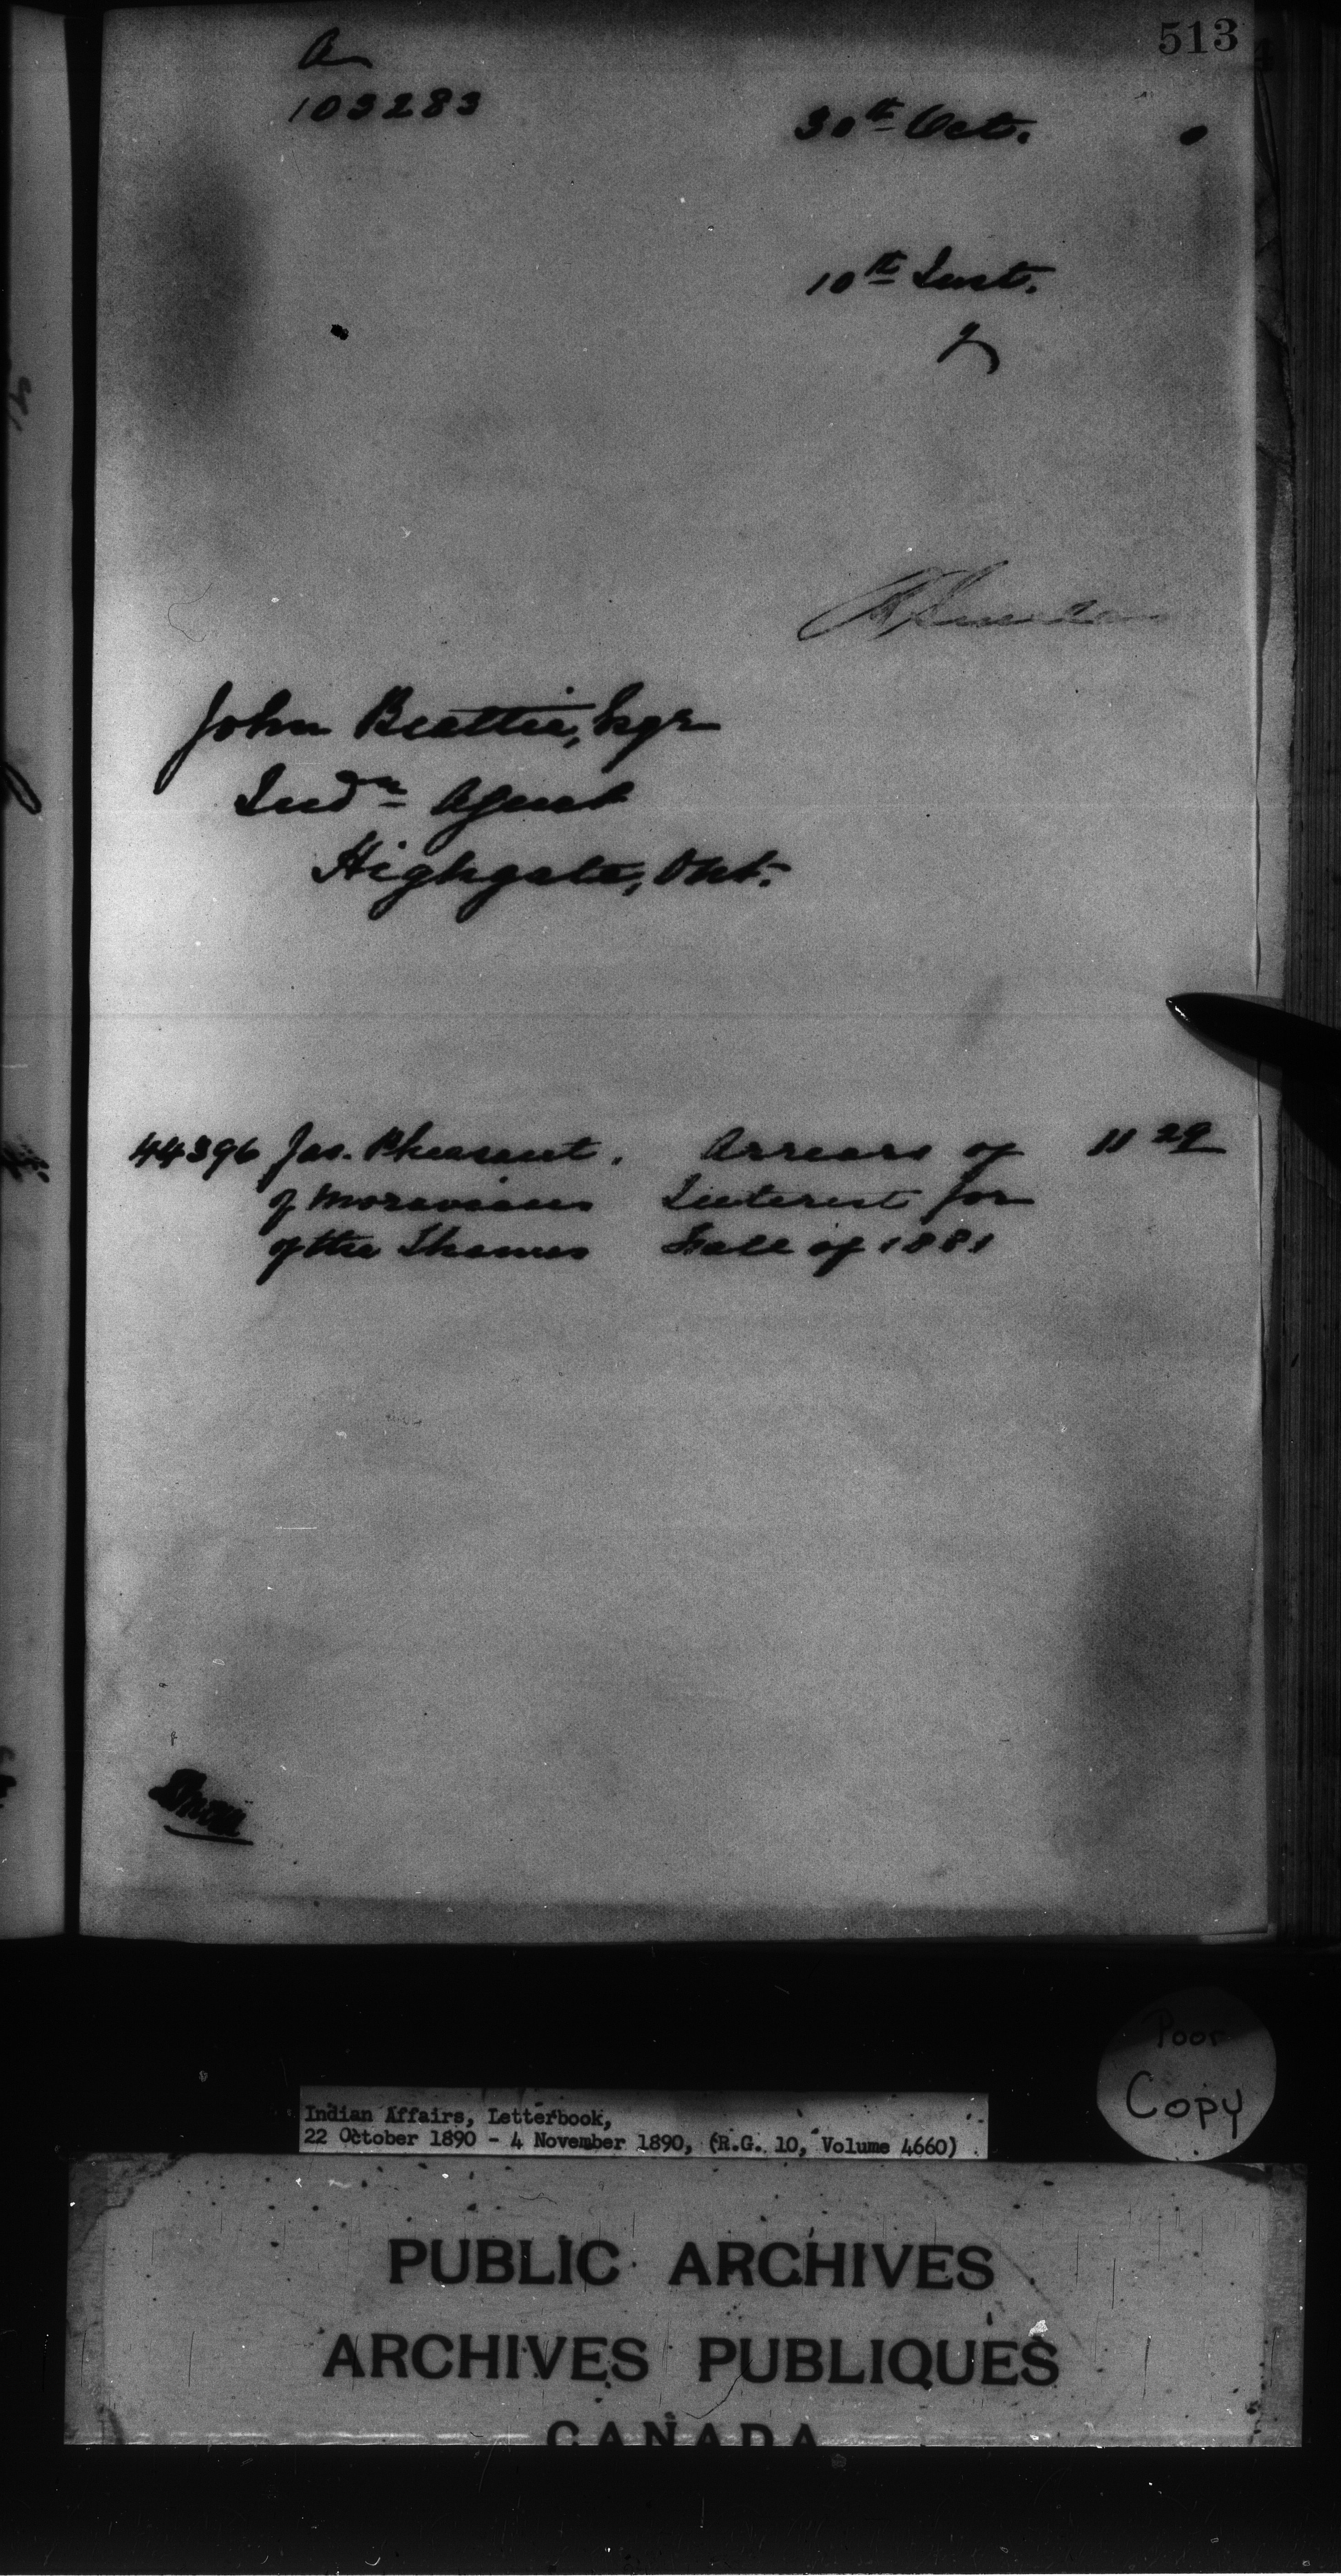 513
A
103283
30th Oct. 0
10th Inst.
John Beattie, Esqr
Indn Agent
Highgate, Ont.
44396 Jas. Pheasant. Arrears of 11 29
of Moravians Interest for
of the Thames Fall of 1881
Poor
Copy
Indian Affairs, Letterbook,
22 October 1890 - 4 November 1890, (R.G. 10, Volume 4660)
PUBLIC ARCHIVES
ARCHIVES PUBLIQUES
CANADA